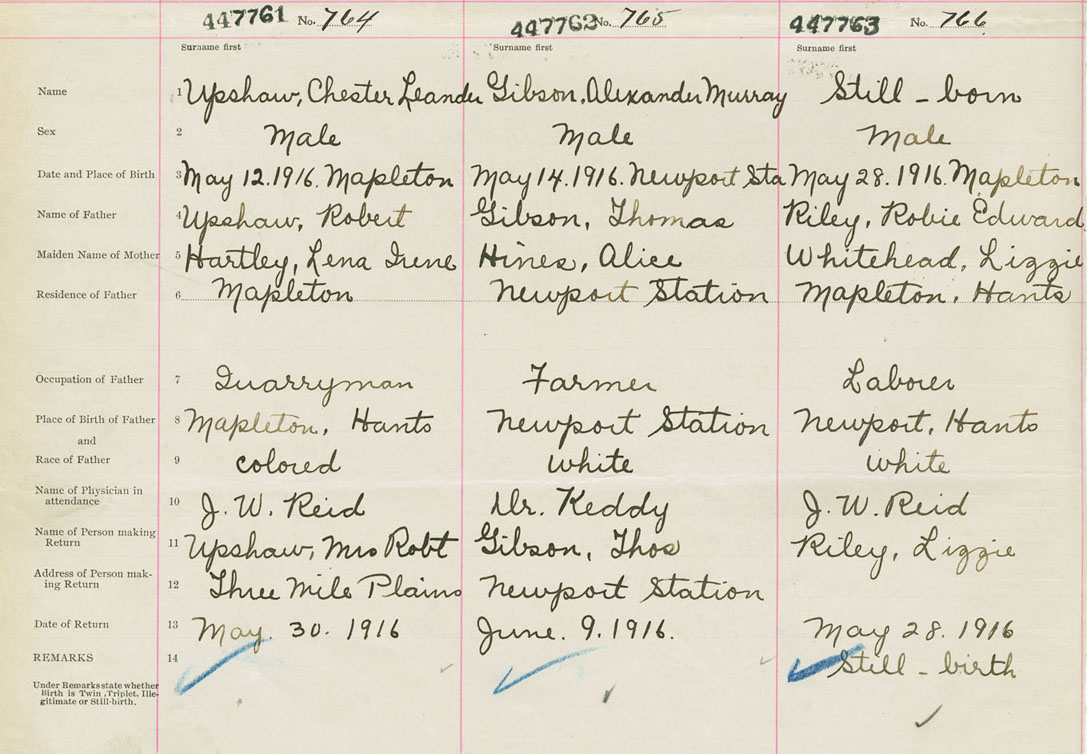 447761 No. 764 447762 No. 765 447763 No. 766
Surname first Surname first Surname first
Name 1 Upshaw, Chester Leander Gibson, Alexander Murray Still - born
Sex 2 Male Male Male
Date and Place of Birth 3 May 12. 1916. Mapleton May 14. 1916. Newport Sta May 28. 1916. Mapleton
Name of Father 4 Upshaw, Robert Gibson, Thomas Riley, Robie Edward
Maiden Name of Mother 5 Hartley, Lena Irene Hines, Alice Whitehead, Lizzie
Residence of Father 6 Mapleton Newport Station Mapleton, Hants
Occupation of Father 7 Quarryman Farmer Laborer
Place of Birth of Father 8 Mapleton, Hants Newport Station Newport, Hants
and
Race of Father 9 colored white white
Name of Physician in
attendance 10 J. W. Reid Dr. Keddy J. W. Reid
Name of Person making
Return 11 Upshaw, Mrs Robt Gibson, Thos Riley, Lizzie
Address of Person mak-
ing Return 12 Three Mile Plains Newport Station
Date of Return 13 May. 30. 1916 June. 9. 1916. May 28. 1916
REMARKS 14 Still - birth
Under Remarks state whether
Birth is Twin, Triplet, Ille-
gitimate or Still-birth.